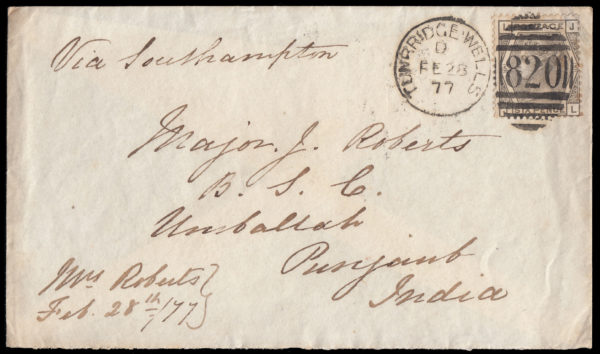 Via Southampton
TUNBRIDGE-WELLS
D
FE 28
77
J
POSTAGE
820
L SIX PENCE L
Major. J. Roberts
B. S. C.
Umballah
Punjaub
India
Mrs Roberts
Feb. 28th/77